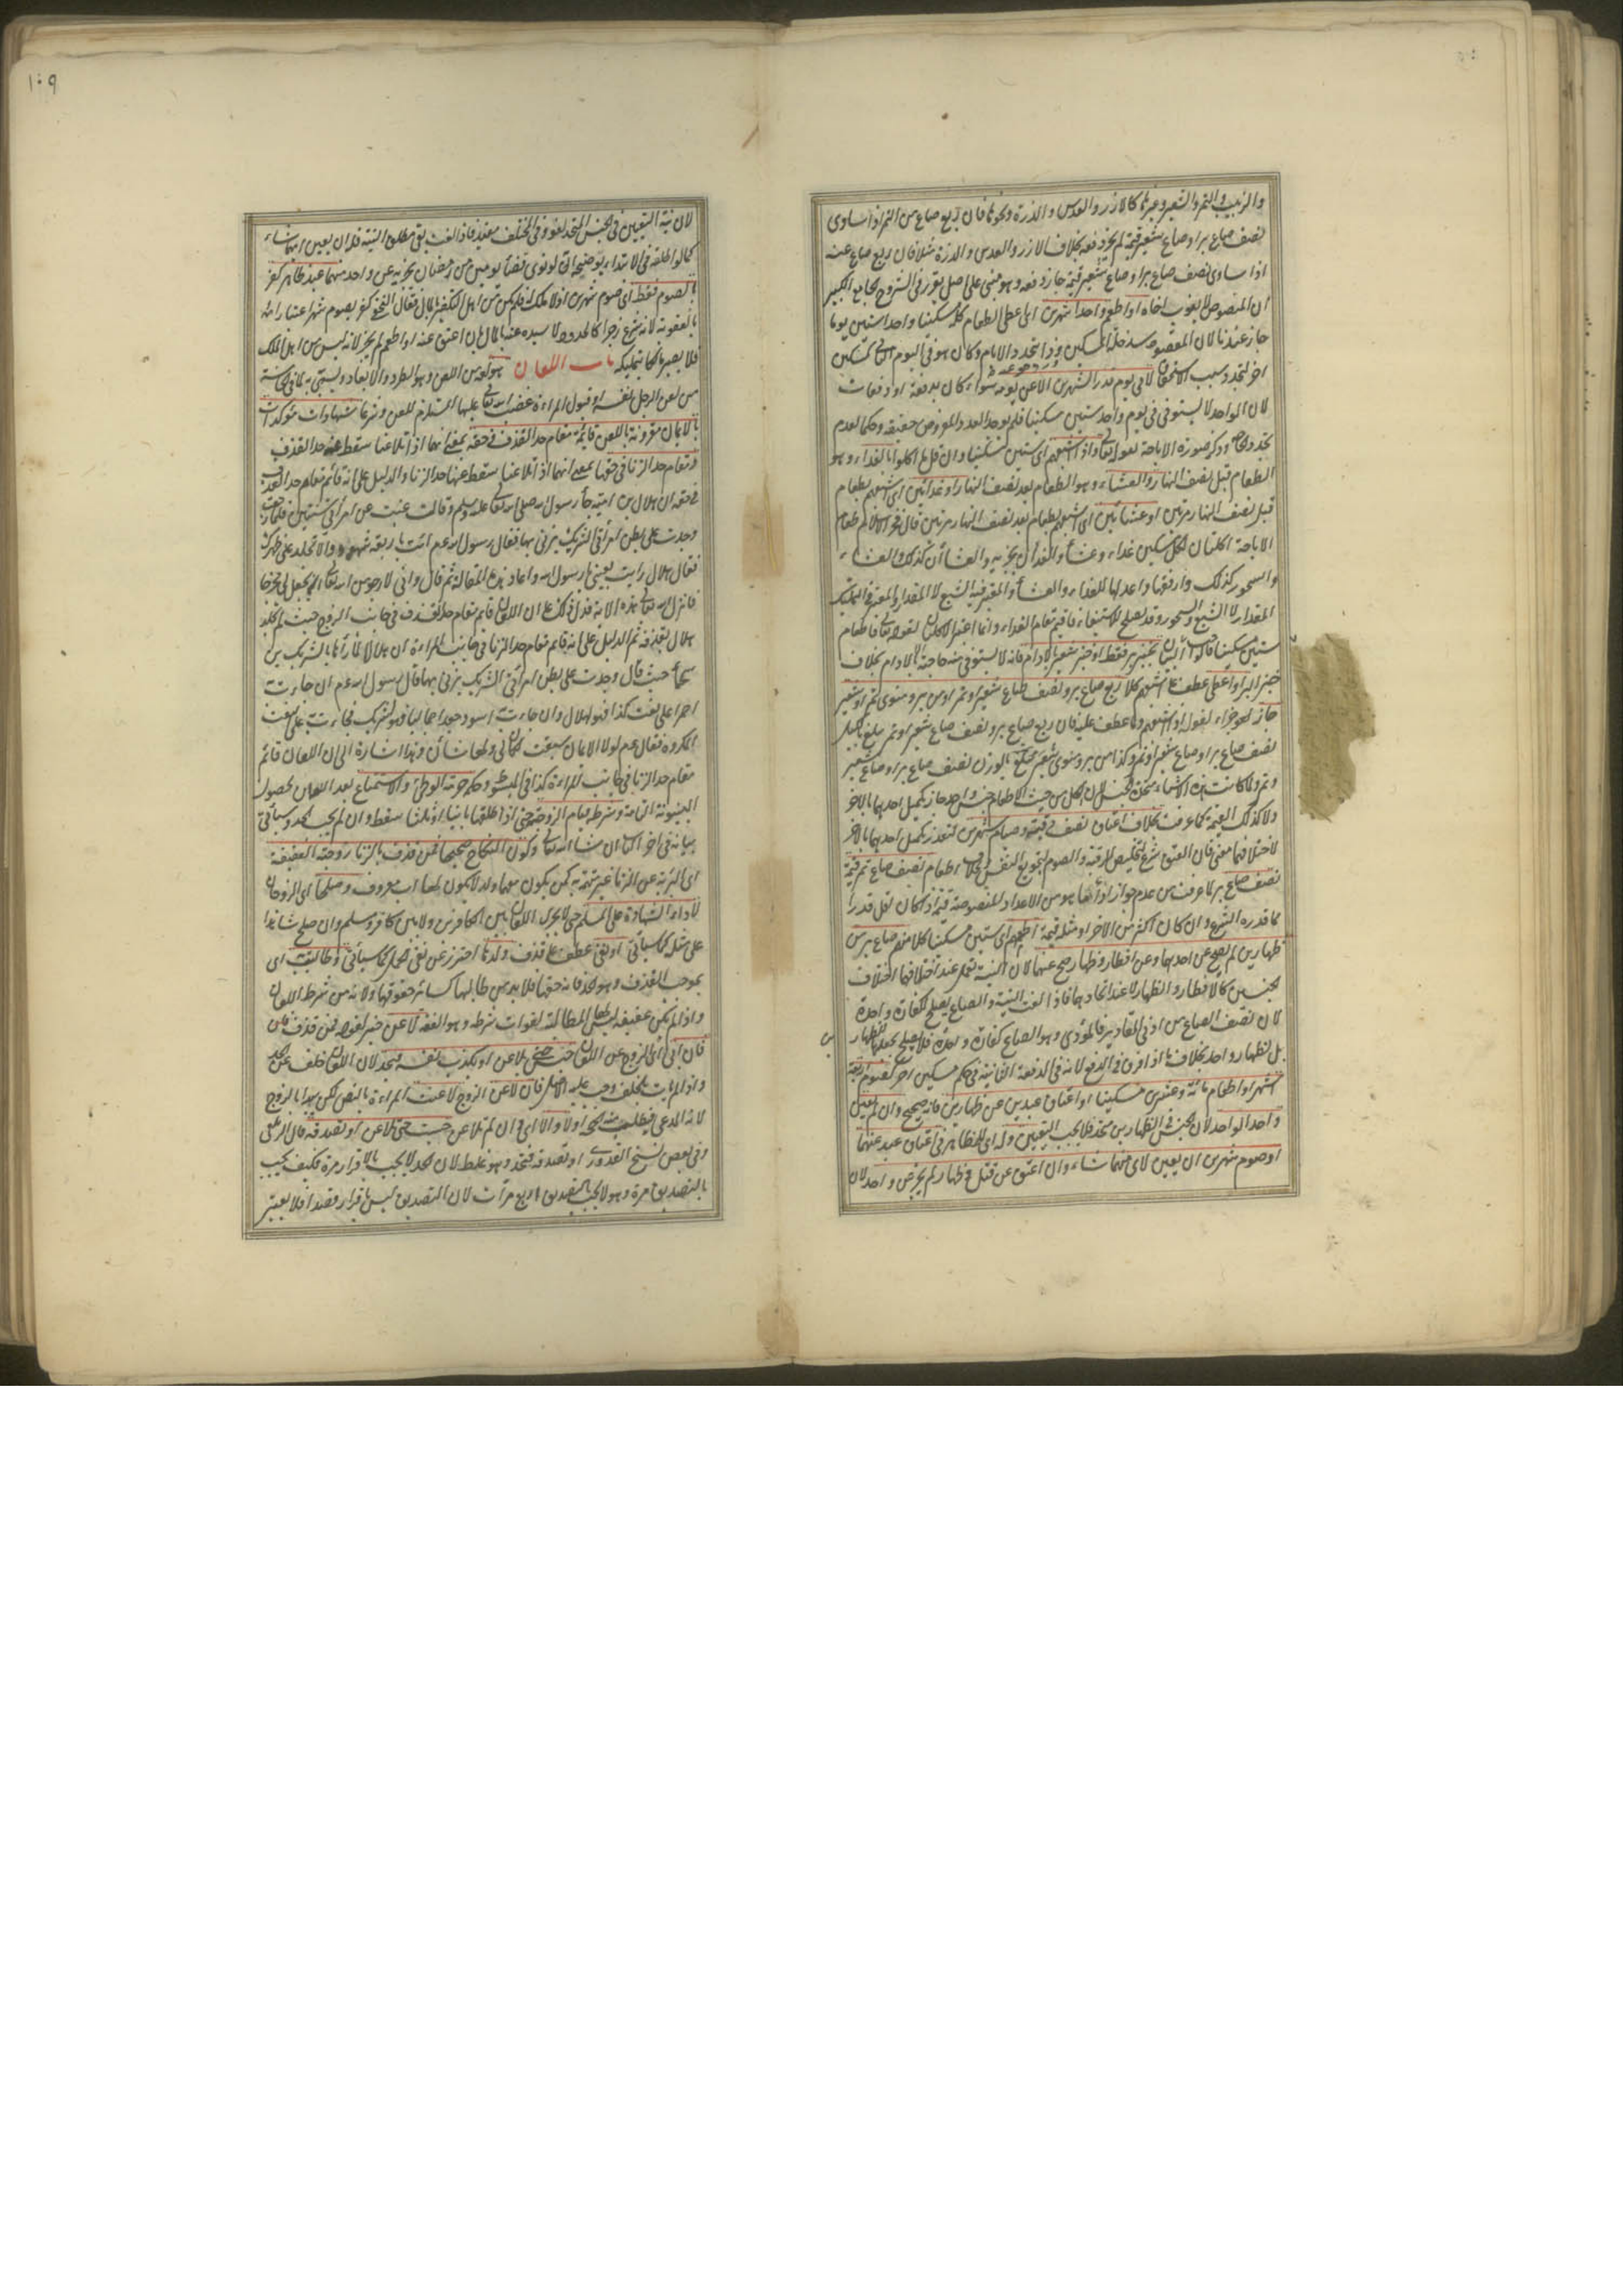 والزبيب والتمر والشعير وغيرها كالارز والعدس والذرة ونحوها فان ربع صاع من التمر اذا ساوى
نصف صاع بر او صاع شعير قيمة لم يجز دفعه بخلاف الارز والعدس والذرة مثلا فان ربع صاع عنه
اذا ساوى نصف صاع بر او صاع شعير قيمة جاز دفعه وهو مبنى على اصل تقرر فى الشروح كجامع الكبير
ان المنصوص لا ينوب اخاه او اطعم واحدا شهرين اى اعطى الطعام كله مسكينا واحدا ستين يوما
جاز عندنا لان المقصود سد خلة المسكين وذا يتجدد الايام وكان هو فى اليوم الثانى كمسكين
اخر لتجدد سبب الاستحقاق لا فى يوم قدر الشهرين الا عن يومه سواء كان بدفعة او دفعات
لان الواحد لا يستوفى فى يوم واحد ستين مسكينا فلم يوجد العدد المفروض حقيقة وحكما لعدم
تجدد وذكر صورة الاباحة بقوله واذا اشبعهم اى ستين مسكينا وان قل ما اكلوا بالغداء وهو
الطعام قبل نصف النهار والعشاء وهو الطعام بعد نصف النهار او غدائين اى اشبعهم بطعام
قبل نصف النهار مرتين او عشائين اى اشبعهم بطعام بعد نصف النهار مرتين قال فخر الاسلام طعام
الاباحة اكلتان لكل مسكين غداء وعشاء والغداآن يجزيه والعشاآن كذلك والعشاء
والسحور كذلك وارفقها واعدلها الغداء والعشاء والمعتبر فيه الشبع لا المقدار والمعتبر فى التمليك
المقدار لا الشبع
ستين مسكينا
خبز البر او اعطى عطف على اشبعهم كلا ربع صاع بر ونصف صاع شعير او تمر او من بر ومنوى تمر او شعير
جاز
نصف صاع بر او صاع شعير او تمر وكذا من بر ومنوى شعير
وتمر ولما كانت هذه الاشياء متحدة الجنس لان الكل من حيث الاطعام جنس واحد جاز تكميل احدها بالاخر
ولا كذلك القيمة كما عرفت بخلاف اعتاق نصف رقبة وصيام شهرين لتعذر تكميل احدهما بالاخر
لاختلافهما معنى فان العتق شرع لتخليص الرقبة والصوم لتجويع النفس وبخلاف اطعام نصف صاع تمر قيمة
نصف صاع بر لما عرفت من عدم جواز اداء ما هو من الاعداد المنصوصة قيمة اذا كان اقل قدرا
مما قدره الشرع وان كان اكثر من الاخر او مثله قيمة اطعم اى ستين مسكينا كلا منهم صاع بر من
ظهارين لم يصح عن احدهما وعن افطار وظهار صح عنهما لان النية تعمل عند اختلاف
الجنسين كالافطار والظهار لا عند اتحادهما فاذا لغت النية والصاع يصلح كفارة واحدة
لان نصف الصاع من ادنى المقادير فالمؤدى وهو الصاع كفارة واحدة فلا يصلح بجعلها للظهار
بل لظهار واحد بخلاف ما اذا فرق فى الدفع لانه فى الدفعة الثانية فى حكم مسكين اخر كصوم اربعة
اشهر او اطعام مائة وعشرين مسكينا او اعتاق عبدين عن ظهارين فانه صحيح وان لم يعين
واحدا لواحد لان الجنس فى الظهارين متحد فلا يجب التعيين وله اى للمظاهر فى اعتاق عبد عنهما
او صوم شهرين ان يعين لاى منهما شاء وان اعتق عن قتل وظهار لم يجز عن واحد لان
١٠٩
لان نية التعيين فى الجنس المتحد لغو وفى المختلف مفيد فاذا لغت بقى مطلق النية فله ان يعين ايهما شاء
كما لو اطلقه فى الابتداء توضيحه انه لو نوى قضاء يومين من رمضان يجزيه عن واحد منهما عبد ظاهر كفر
بالصوم فقط اى صوم شهرين اذ لا ملك له فلم يكن من اهل التكفير بالمال فقال النخعى كفر بصوم شهر اعتبارا
بالعقوبة لانه شرع زجرا كالحدود لا سيده عنه بالمال بان اعتق عنه او اطعم لم يجز لانه ليس من اهل الملك
فلا يصير مالكا بتمليكه باب اللعان هو لغة من اللعن وهو الطرد والابعاد
من لعن الرجل نفسه وقبول المراة غضب الله تعالى عليها المستلزم للعن وشرعا شهادات مؤكدات
بالايمان مقرونة باللعن قائمة مقام حد القذف فى حقه بمعنى انهما اذا تلاعنا سقط عنه حد القذف
ومقام حد الزنا فى حقها بمعنى انهما اذا تلاعنا سقط عنها حد الزنا والدليل على انه قائم مقام حد القذف
فى حقه ان هلال بن امية جاء رسول الله صلى الله تعالى عليه وسلم وقال غبت عن امرأتى سنتين فلما رجعت
وجدت على بطن امرأتى الشريك يزنى بها فقال رسول الله عم ائت باربعة شهود والا تجلد على ظهرك
فقال هلال رايت بعينى يا رسول الله واعاد هذه المقالة ثم قال وانى لارجو من الله تعالى ان يجعل لى مخرجا
فانزل الله تعالى هذه الاية فدل ذلك على ان اللعان قائم مقام حد القذف فى جانب الزوج حيث لم يجلد
هلال بقذفه ثم الدليل على انه قائم مقام حد الزنا فى جانب المراة ان هلالا لما رآها بالشريك بن
سحماء حيث قال وجدت على بطن امرأتى الشريك يزنى بها قال رسول الله عم ان جاءت
احمر على نعت كذا فهو لهلال وان جاءت اسود جعدا جماليا فهو لشريك فجاءت على النعت
المكروه فقال عم لولا الايمان سبقت لكان لى ولها شأن وهذا اشارة الى ان اللعان قائم
مقام حد الزنا فى جانب المراة كذا فى المبسوط وحكمه حرمة الوطئ والاستمتاع بعد اللعان لحصول
البينونة التامة وشرطه قيام الزوجية حتى اذا طلقها بائنا او ثلثا سقط وان لم يجب الحد وسيأتى
بيانه فى اخر الباب ان شاء الله تعالى وكون النكاح صحيحا فمن قذف بالزنا زوجته العفيفة
اى البرية عن الزنا غير متهمة به كمن يكون معها ولد لا يكون لها اب معروف وصلحا اى الزوجان
لاداء الشهادة على المسلم حتى لا يجرى اللعان بين الكافرين ولا بين كافر ومسلم وان صلح شاهدا
على مثله كما سيأتى او نفى عطف على قذف ولدها احترز عن نفى الحمل كما سيأتى وطالبته اى
بموجب القذف وهو الحد فانه حقها فلا بد من طلبها كسائر حقوقها ولانه من شرط اللعان
واذا لم تكن عفيفة ليس لها المطالبة لفوات شرطه وهو العفة لاعن خبر لقوله فمن قذف
فان ابى اى الزوج عن اللعان حبس حتى يلاعن او يكذب نفسه فيحد لان اللعان خلف عن الحد
واذا لم يأت بالخلف وجب عليه الاصل فان لاعن الزوج لاعنت المراة بالنص لكن يبدأ بالزوج
لانه المدعى فيطلب منه الحجة اولا والا اى وان لم تلاعن حبست حتى تلاعن او تصدقه قال الزيلعى
وفى بعض نسخ القدورى او تصدقه فتحد وهو غلط لان الحد لا يجب بالاقرار مرة فكيف يجب
بالتصديق مرة وهو لا يجب بالتصديق اربع مرات لان التصديق ليس باقرار قصدا فلا يعتبر